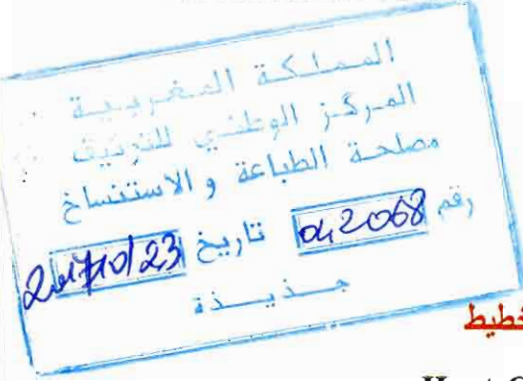 المملكة المغربية
المركز الوطني للتوثيق
مصلحة الطباعة و الاستنساخ
رقم 042068 تاريخ 2017/10/23
جذيذة
خطيط
Haut